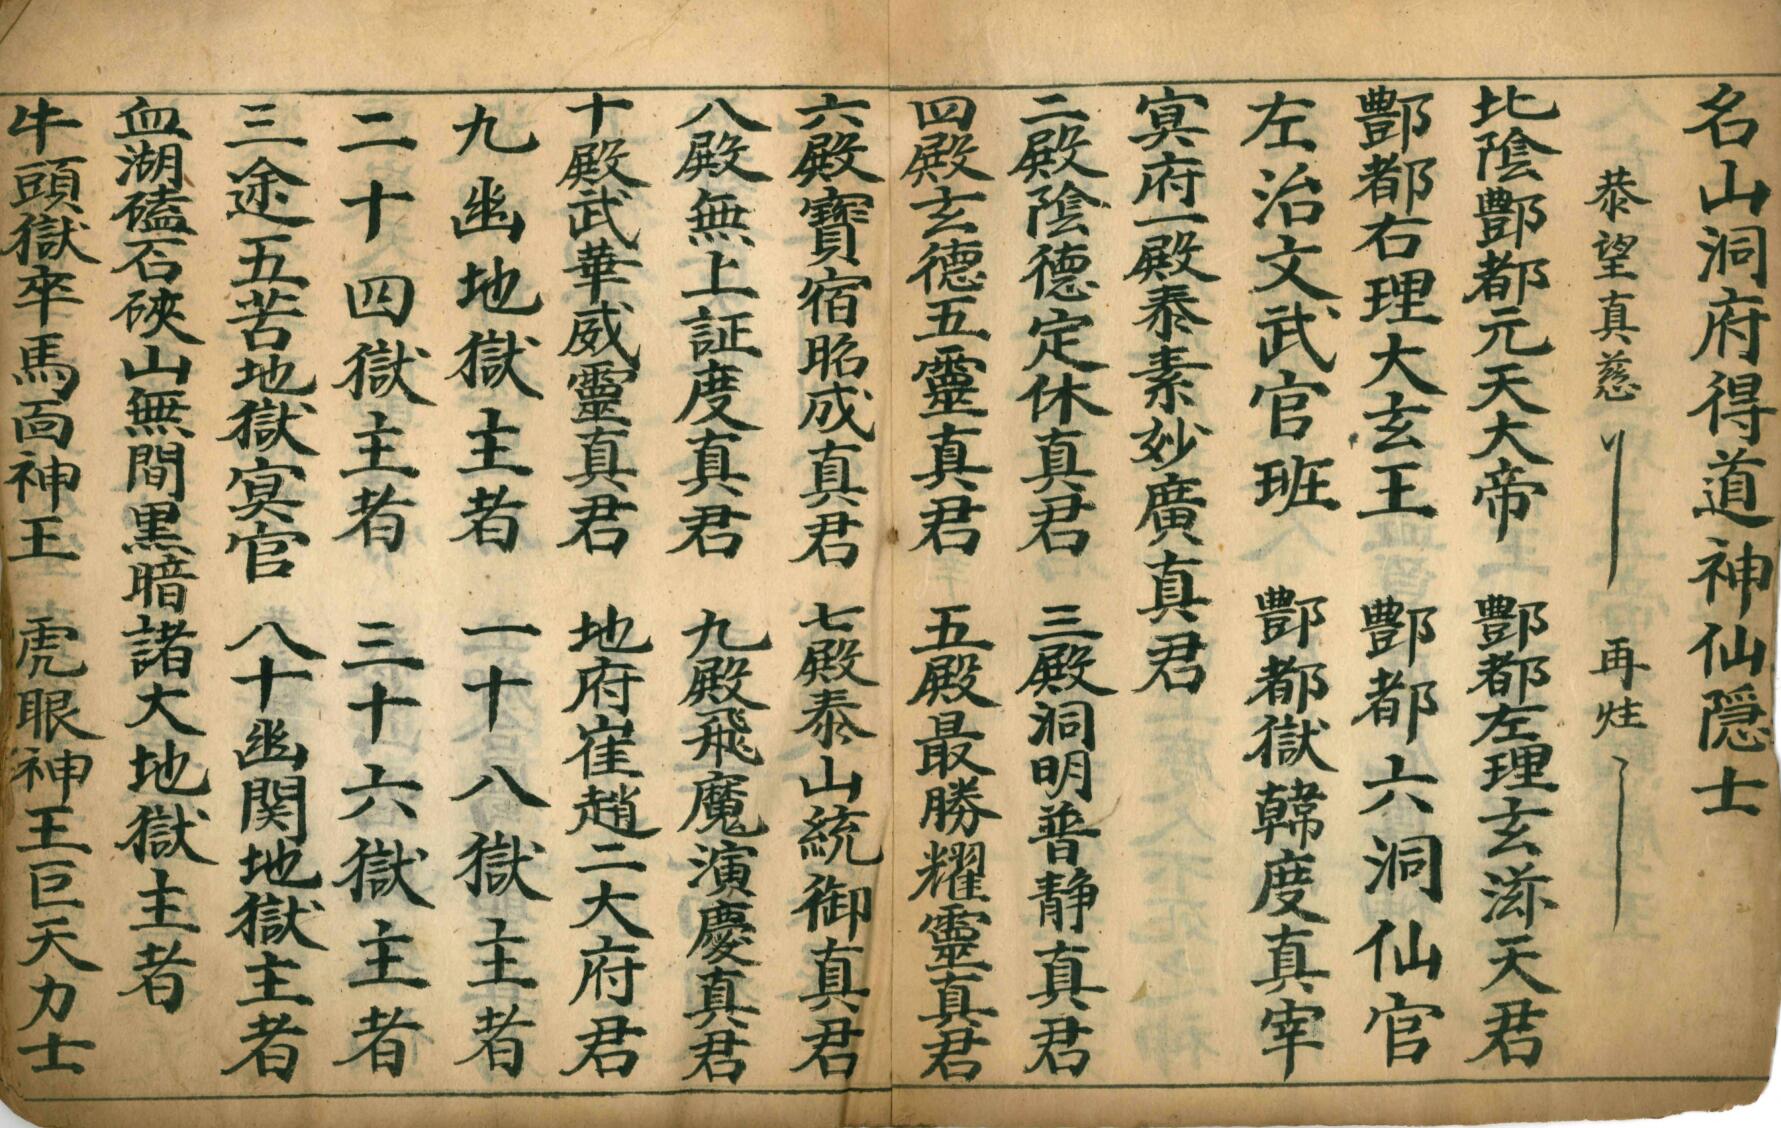 名山洞府得道神仙隠士
恭望真慈 再炷
北陰酆都元天大帝 酆都左理玄滋天君
酆都右理大玄王 酆都六洞仙官
左治文武官班 酆都獄韓度真宰
冥府一殿泰素妙廣真君
二殿陰德定休真君 三殿洞明普静真君
四殿玄德五靈真君 五殿最勝耀靈真君
六殿寶宿昭成真君 七殿泰山統御真君
八殿無上証度真君 九殿飛魔演慶真君
十殿武華威靈真君 地府崔趙二大府君
九幽地獄主者 一十八獄主者
二十四獄主者 三十六獄主者
三途五苦地獄冥官 八十幽関地獄主者
血湖磕石硤山無間黒暗諸大地獄主者
牛頭獄卒馬面神王 虎眼神王巨天力士